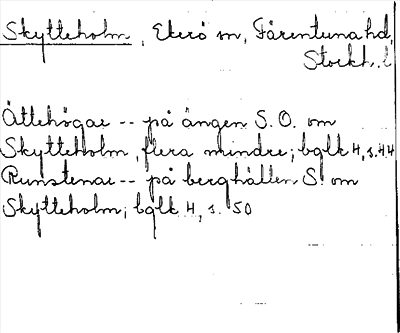 Skytteholm, Ekerö sn, Färentuna hd,
Stockh. l
Ättehögar -- på ängen S.O. om
Skytteholm, flera mindre; bglk 4, s. 44
Runstenar -- på berghällen S. om
Skytteholm; bglk 4, s. 50